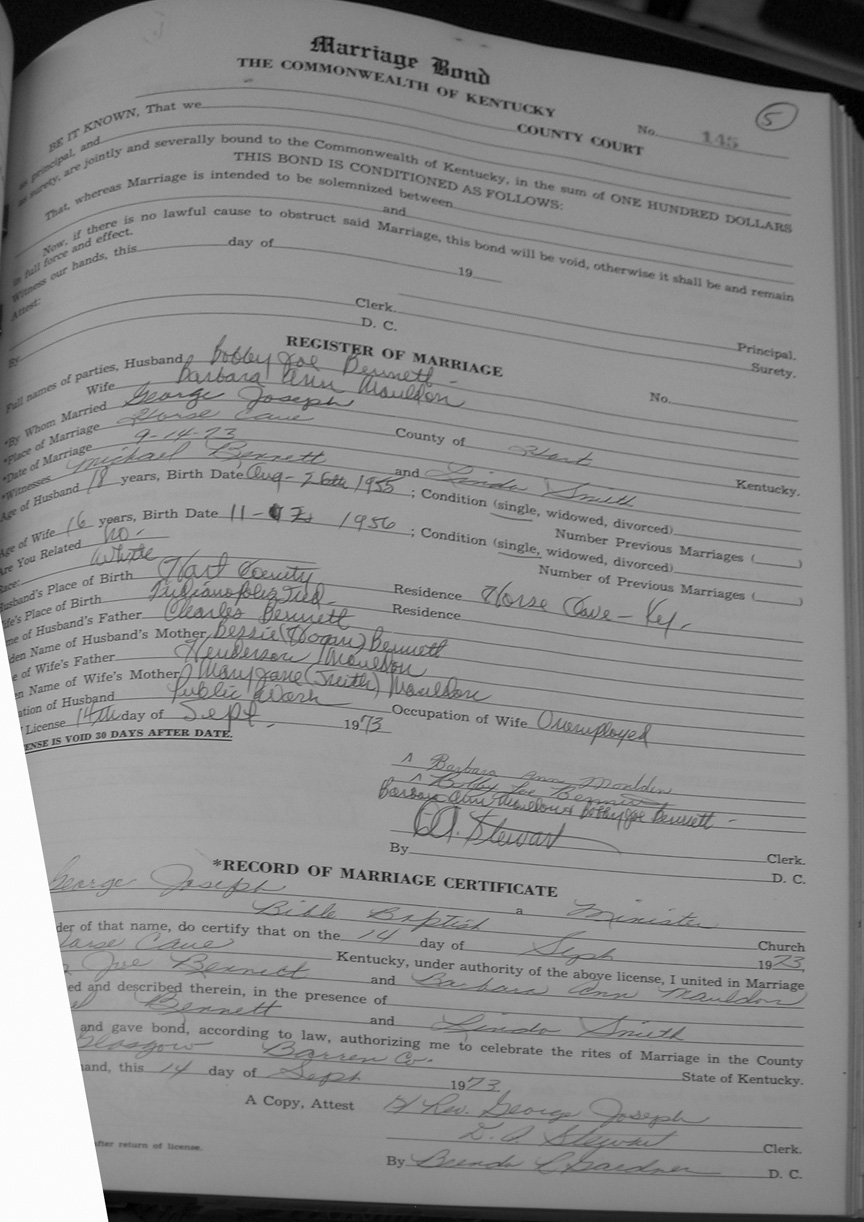 Marriage Bond
THE COMMONWEALTH OF KENTUCKY
5
No. 145
COUNTY COURT
BE IT KNOWN, That we
as principal, and
as surety, are jointly and severally bound to the Commonwealth of Kentucky, in the sum of ONE HUNDRED DOLLARS
THIS BOND IS CONDITIONED AS FOLLOWS:
That, whereas Marriage is intended to be solemnized between
and
Now, if there is no lawful cause to obstruct said Marriage, this bond will be void, otherwise it shall be and remain
in full force and effect.
Witness our hands, this day of 19
Attest:
Clerk. Principal.
By D. C. Surety.
REGISTER OF MARRIAGE
No.
Full names of parties, Husband Bobby Joe Bennett
Wife Barbara Ann Mauldon
*By Whom Married George Joseph
*Place of Marriage Horse Cave County of Hart Kentucky.
*Date of Marriage 9-14-73
*Witnesses Michael Bennett and Linda Smith
Age of Husband 18 years, Birth Date Aug - 26th 1955; Condition (single, widowed, divorced)
Number Previous Marriages ( )
Age of Wife 16 years, Birth Date 11- 1956; Condition (single, widowed, divorced)
Number of Previous Marriages ( )
Are You Related No.
Race: White
Husband's Place of Birth Hart County Residence Horse Cave - Ky.
ife's Place of Birth Indianapolis Ind. Residence
me of Husband's Father Charles Bennett
den Name of Husband's Mother Bessie Bennett
e of Wife's Father Henderson Mauldon
n Name of Wife's Mother Mary Jane (Smith) Mauldon
ation of Husband Public Work Occupation of Wife Unemployed
License 14th day of Sept. 1973
ENSE IS VOID 30 DAYS AFTER DATE.
Barbara Ann Mauldin
Bobby Joe Bennett
Barbara Ann Mauldon & Bobby Joe Bennett
Stewart
By Clerk.
D. C.
*RECORD OF MARRIAGE CERTIFICATE
George Joseph a Minister
Bible Baptist Church
der of that name, do certify that on the 14 day of Seph 1973,
Horse Cave Kentucky, under authority of the above license, I united in Marriage
Joe Bennett and Barbara Ann Mauldon
ed and described therein, in the presence of
el Bennett and Linda Smith
and gave bond, according to law, authorizing me to celebrate the rites of Marriage in the County
Glasgow Barren Co. State of Kentucky.
and, this 14 day of Seph 1973
A Copy, Attest Rev. George Joseph
Stewart Clerk.
after return of license.
By Brenda L Gardner D. C.